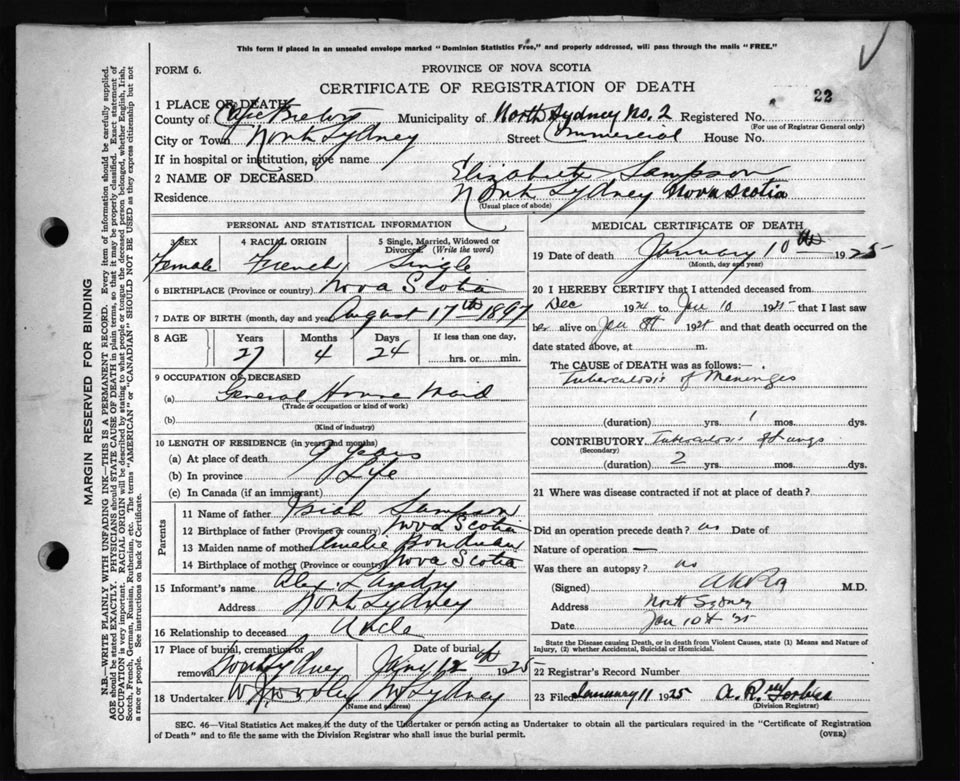 This form if placed in an unsealed envelope marked "Dominion Statistics Free," and properly addressed, will pass through the mails "FREE."
FORM 6.
PROVINCE OF NOVA SCOTIA
CERTIFICATE OF REGISTRATION OF DEATH
22
1 PLACE OF DEATH
County of Cape Breton Municipality of North Sydney No. 2 Registered No.
(For use of Registrar General only)
City or Town North Sydney Street Commercial House No.
If in hospital or institution, give name
2 NAME OF DECEASED Elizabeth Sampson
Residence North Sydney Nova Scotia
(Usual place of abode)
PERSONAL AND STATISTICAL INFORMATION
3 SEX 4 RACIAL ORIGIN 5 Single, Married, Widowed or Divorced (Write the word)
Female French Single
6 BIRTHPLACE (Province or country) Nova Scotia
7 DATE OF BIRTH (month, day and year) August 17th 1897
8 AGE Years Months Days If less than one day,
27 4 24 hrs. or min.
9 OCCUPATION OF DECEASED
(a) General House Maid
(Trade or occupation or kind of work)
(b)
(Kind of industry)
10 LENGTH OF RESIDENCE (in years and months)
(a) At place of death 9 years
(b) In province Life
(c) In Canada (if an immigrant)
Parents
11 Name of father Sampson
12 Birthplace of father (Province or country) Nova Scotia
13 Maiden name of mother Amelie
14 Birthplace of mother (Province or country) Nova Scotia
15 Informant's name Alex Landry
Address North Sydney
16 Relationship to deceased Uncle
17 Place of burial, cremation or removal Date of burial
North Sydney Jany 12th 1925
18 Undertaker N. Sydney
(Name and address)
MEDICAL CERTIFICATE OF DEATH
19 Date of death January 10th 1925
(Month, day and year)
20 I HEREBY CERTIFY that I attended deceased from
Dec 1924 to Jan 10 1925 that I last saw
her alive on Jan 8th 192 and that death occurred on the
date stated above, at m.
The CAUSE OF DEATH was as follows:—
Tuberculosis of Meninges
(duration) yrs. 1 mos. dys.
CONTRIBUTORY Tuberculosis of Lungs
(Secondary)
(duration) 2 yrs. mos. dys.
21 Where was disease contracted if not at place of death?
Did an operation precede death? no Date of
Nature of operation —
Was there an autopsy? no
(Signed) M.D.
Address North Sydney
Date Jan 10th 25
State the Disease causing Death, or in death from Violent Causes, state (1) Means and Nature of Injury, (2) whether Accidental, Suicidal or Homicidal.
22 Registrar's Record Number
23 Filed January 11 1925 A. R. Forbes
(Division Registrar)
SEC. 46—Vital Statistics Act makes it the duty of the Undertaker or person acting as Undertaker to obtain all the particulars required in the "Certificate of Registration
of Death" and to file the same with the Division Registrar who shall issue the burial permit.
(OVER)
MARGIN RESERVED FOR BINDING
N.B.—WRITE PLAINLY WITH UNFADING INK—THIS IS A PERMANENT RECORD. Every item of information should be carefully supplied.
AGE should be stated EXACTLY. PHYSICIANS should STATE CAUSE OF DEATH in plain terms, so that it may be properly classified. Exact statement of
OCCUPATION is very important. RACIAL ORIGIN will be described by stating to what people or tongue the deceased person belonged, whether English, Irish,
Scotch, French, German, Russian, Ruthenian, etc. The terms "AMERICAN" or "CANADIAN" SHOULD NOT BE USED as they express citizenship but not
a race or people. See instructions on back of Certificate.